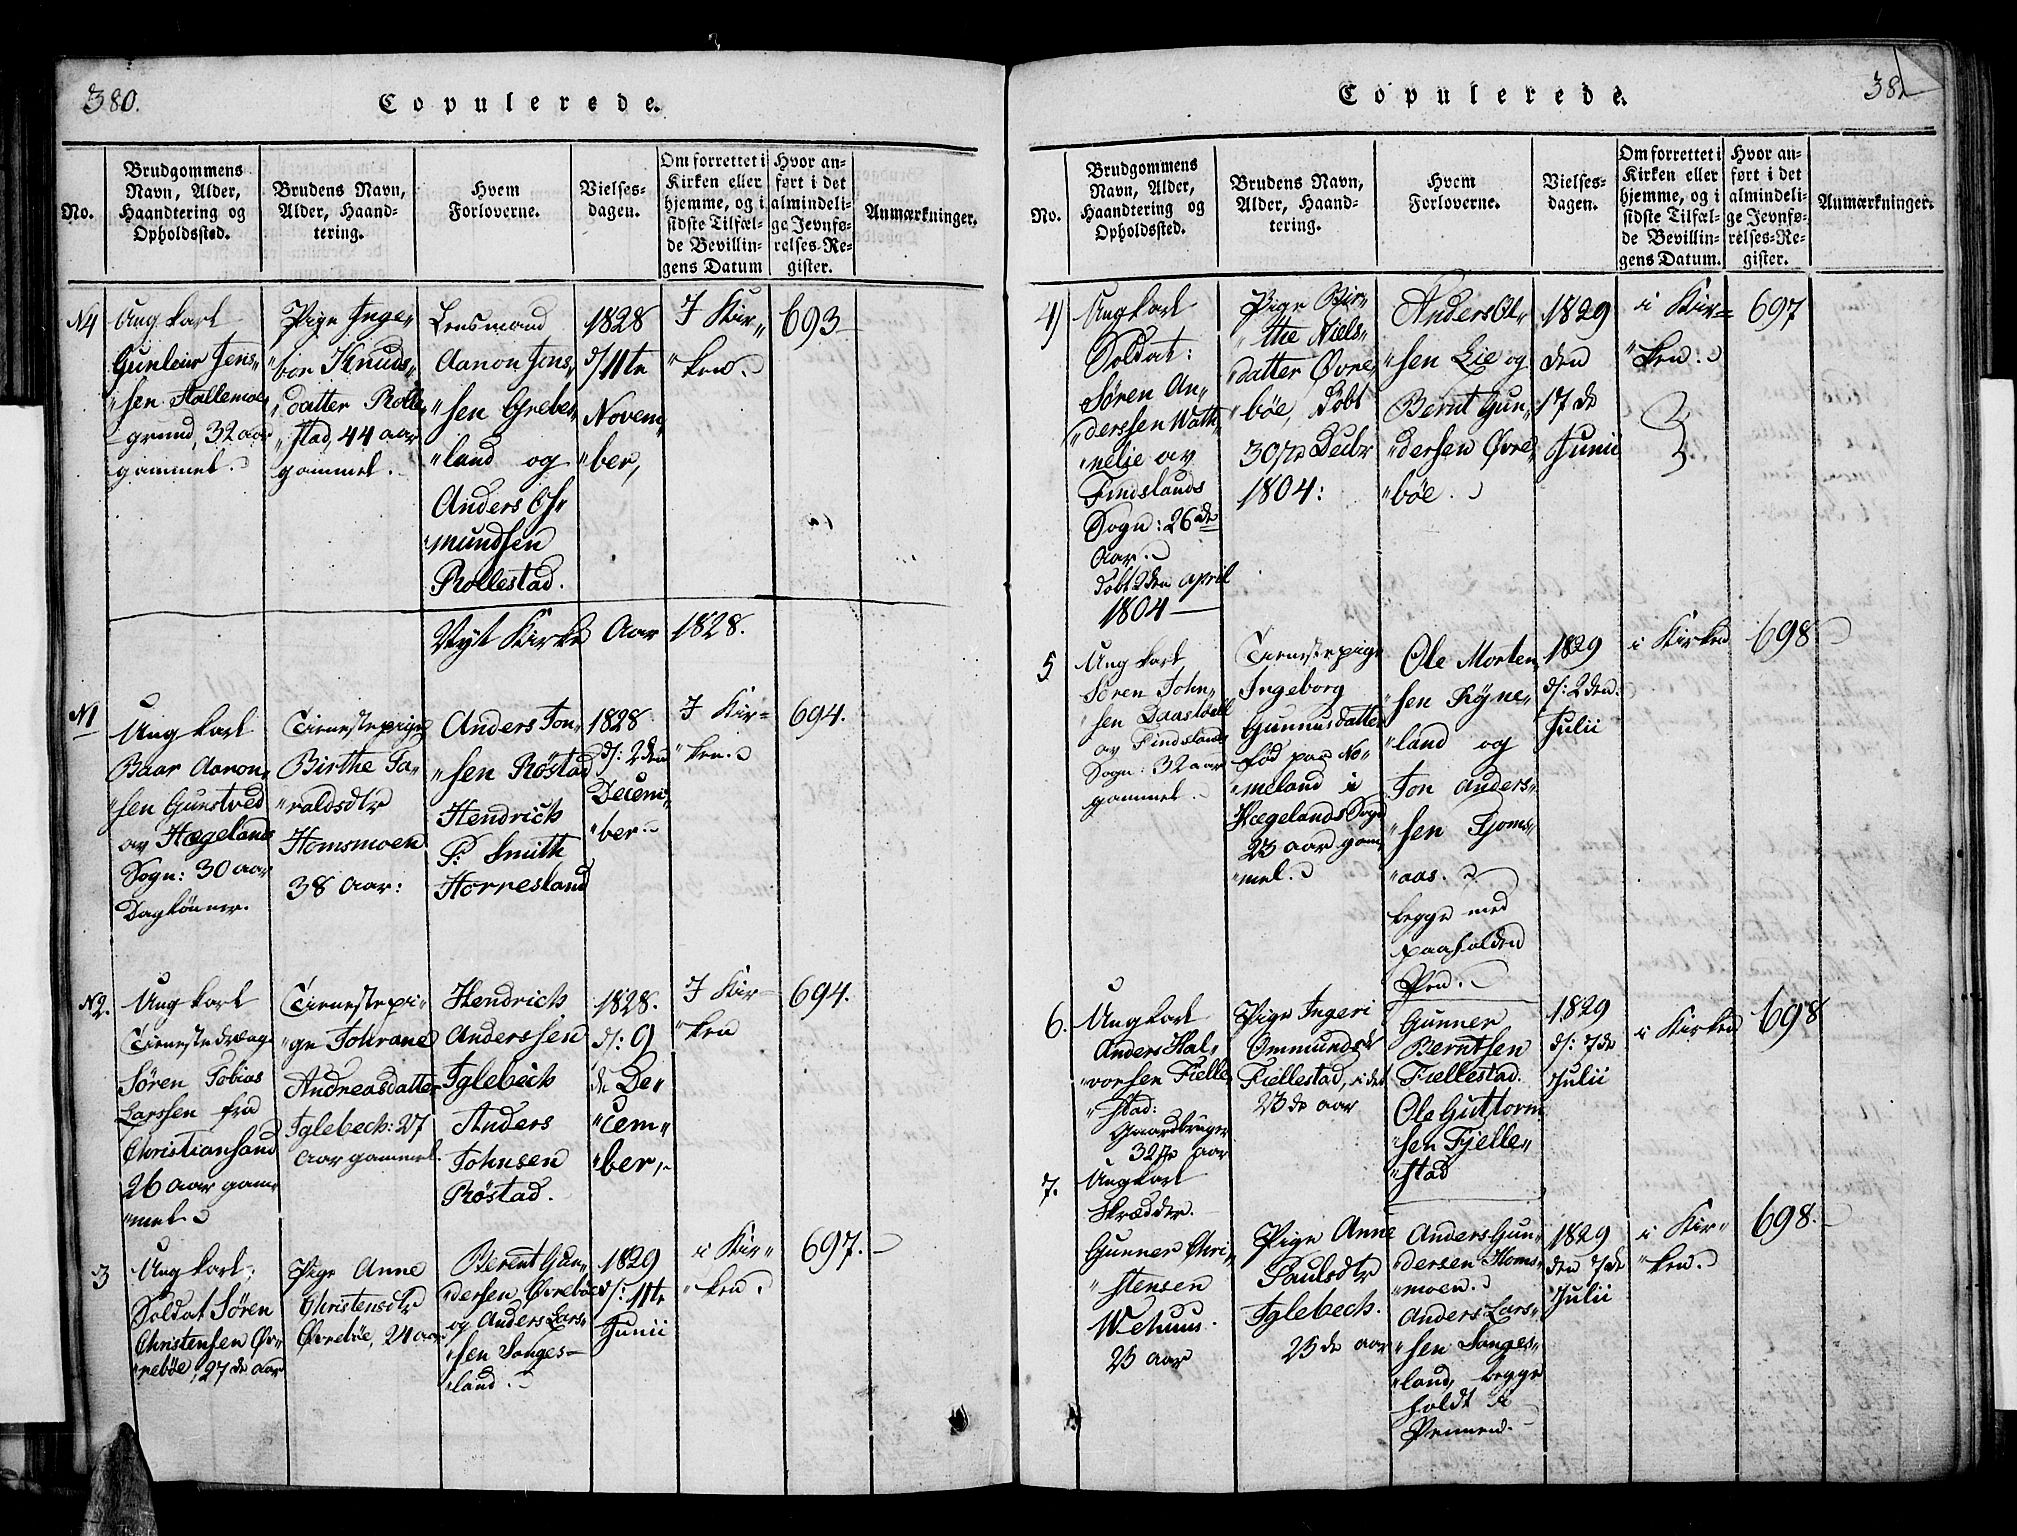 380.
Copulerede.
No.
Brudgommens
Navn, Alder,
Haandtering og
Opholdssted.
Brudens Navn,
Alder, Haand-
tering.
Hvem
Forloverne.
Vielses-
dagen.
Om forrettet i
Kirken eller
hjemme, og i
sidste Tilfæl-
de Bevillin-
gens Datum
Hvor an-
ført i det
almindeli-
ge Jevnfø-
relses-Re-
gister.
Anmærkninger.
N4
Ung karl
Gunleiv Jens„
„sen Stallemoe„
grund, 32 aar
gammel.
Pige Inge„
„bor Knuds„
„datter Rolle„
„stad, 44 aar
gammel.
Lensmand
Aanon Jons„
„sen Grebes„
„land og
Anders
„mundsen
Rollestad.
1828
d/11te
Novem„
„ber,
I Kir„
„ken.
693
Nyt Kirke Aar 1828.
N1
Ung karl
Baar Aanon„
„sen Gunstved
av Hægelands
Sogn: 30 aar
Daglønner.
Tienestepige
Birthe Ta„
„raldsdtr
Homsmoen
38 Aar:
Anders Jon„
„sen Røstad
Hendrich
P: Smith
Horresland
1828
d: 2den
Decem„
„ber
I Kir=
„ken.
694.
N2.
Ung karl
Tienestedræng
Søren Tobias
Larssen fra
Christiansand
26 aar gam„
„mel
Tienestepi„
„ge Tohrane
Andreasdatter
Iglebech: 27
Aar gammel.
Hendrich
Anderssen
Iglebech
Anders
Johnsen
Røstad.
1828.
d: 9
de De„
„cem„
„ber,
I Kir-
„ken
694.
3
Ung karl
Soldat Søren
Christensen Øv„
„rebøe, 27de Aar
Pige Anne
Christensdtr
Øvrebøe, 24 aar
Berent Gun„
„dersen Øvrebøe
og Anders Lars„
„sen Songes-
„land.
1829
d: 11te
Junii
i Kir„
„ken.
697.
381
Copulerede.
No.
Brudgommens
Navn, Alder,
Haandtering og
Opholdssted.
Brudens Navn,
Alder, Haand-
tering.
Hvem
Forloverne.
Vielses-
dagen.
Om forrettet i
Kirken eller
hjemme, og i
sidste Tilfæl-
de Bevillin-
gens Datum.
Hvor an-
ført i det
almindeli-
ge Jevnfø-
relses-Re-
gister.
Anmærkninger.
4)
Ung karl
Soldat:
Søren An„
„derssen Wath„
„nelie av
Findslands
Sogn: 26de
Aar.
Døbt 2den April
1804
Pige Bir„
„the Niels„
datter Øvre„
„bøe, Døbt
30te Decbr
1804:
Anders Ol„
„sen Lie og
Bernt Gun„
„dersen Øvre„
„bøe.
1829
den
17de
Junii
i Kir=
„ken.
697
5
Ung karl
Søren John„
„sen Daastøell
av Findslands
Sogn: 32 aar
gammel.
Tienestepige
Ingeborg
Gunnusdatter
fød paa No„
„meland i
Hægelands Sogn
23 aar gam„
„mel.
Ole Morten„
„sen Ryne„
„land og
Jon Anders„
„sen Fjoms„
„aas.
begge med
paaholden
Pen.
1829
d: 2den
Julii
i Kirken
698
6.
Ung karl
Anders Hal„
„vorsen Fielle„
„stad:
Gaardbruger
32te Aar
Pige Ingeri
Ommundsd
Fiellestad, i det
23de aar
Gunner
Berntsen
Fiellestad.
Ole Guttorm
„sen Fjelle„
„stad
1829
d: 7de
Julii
i Kirken
698
7.
Ung karl
Skrædder.
Gunner Chri„
„stensen
Wehuus.
23 aar
Pige Anne
Paulsdtr
Iglebech.
23de aar
Anders Gun„
dersen Homs„
„moen.
Anders Lars„
„sen Songes„
„land, begge
holdt i
Pennen.
1829
den 7de
Julii
i Kir„
„ken.
698.